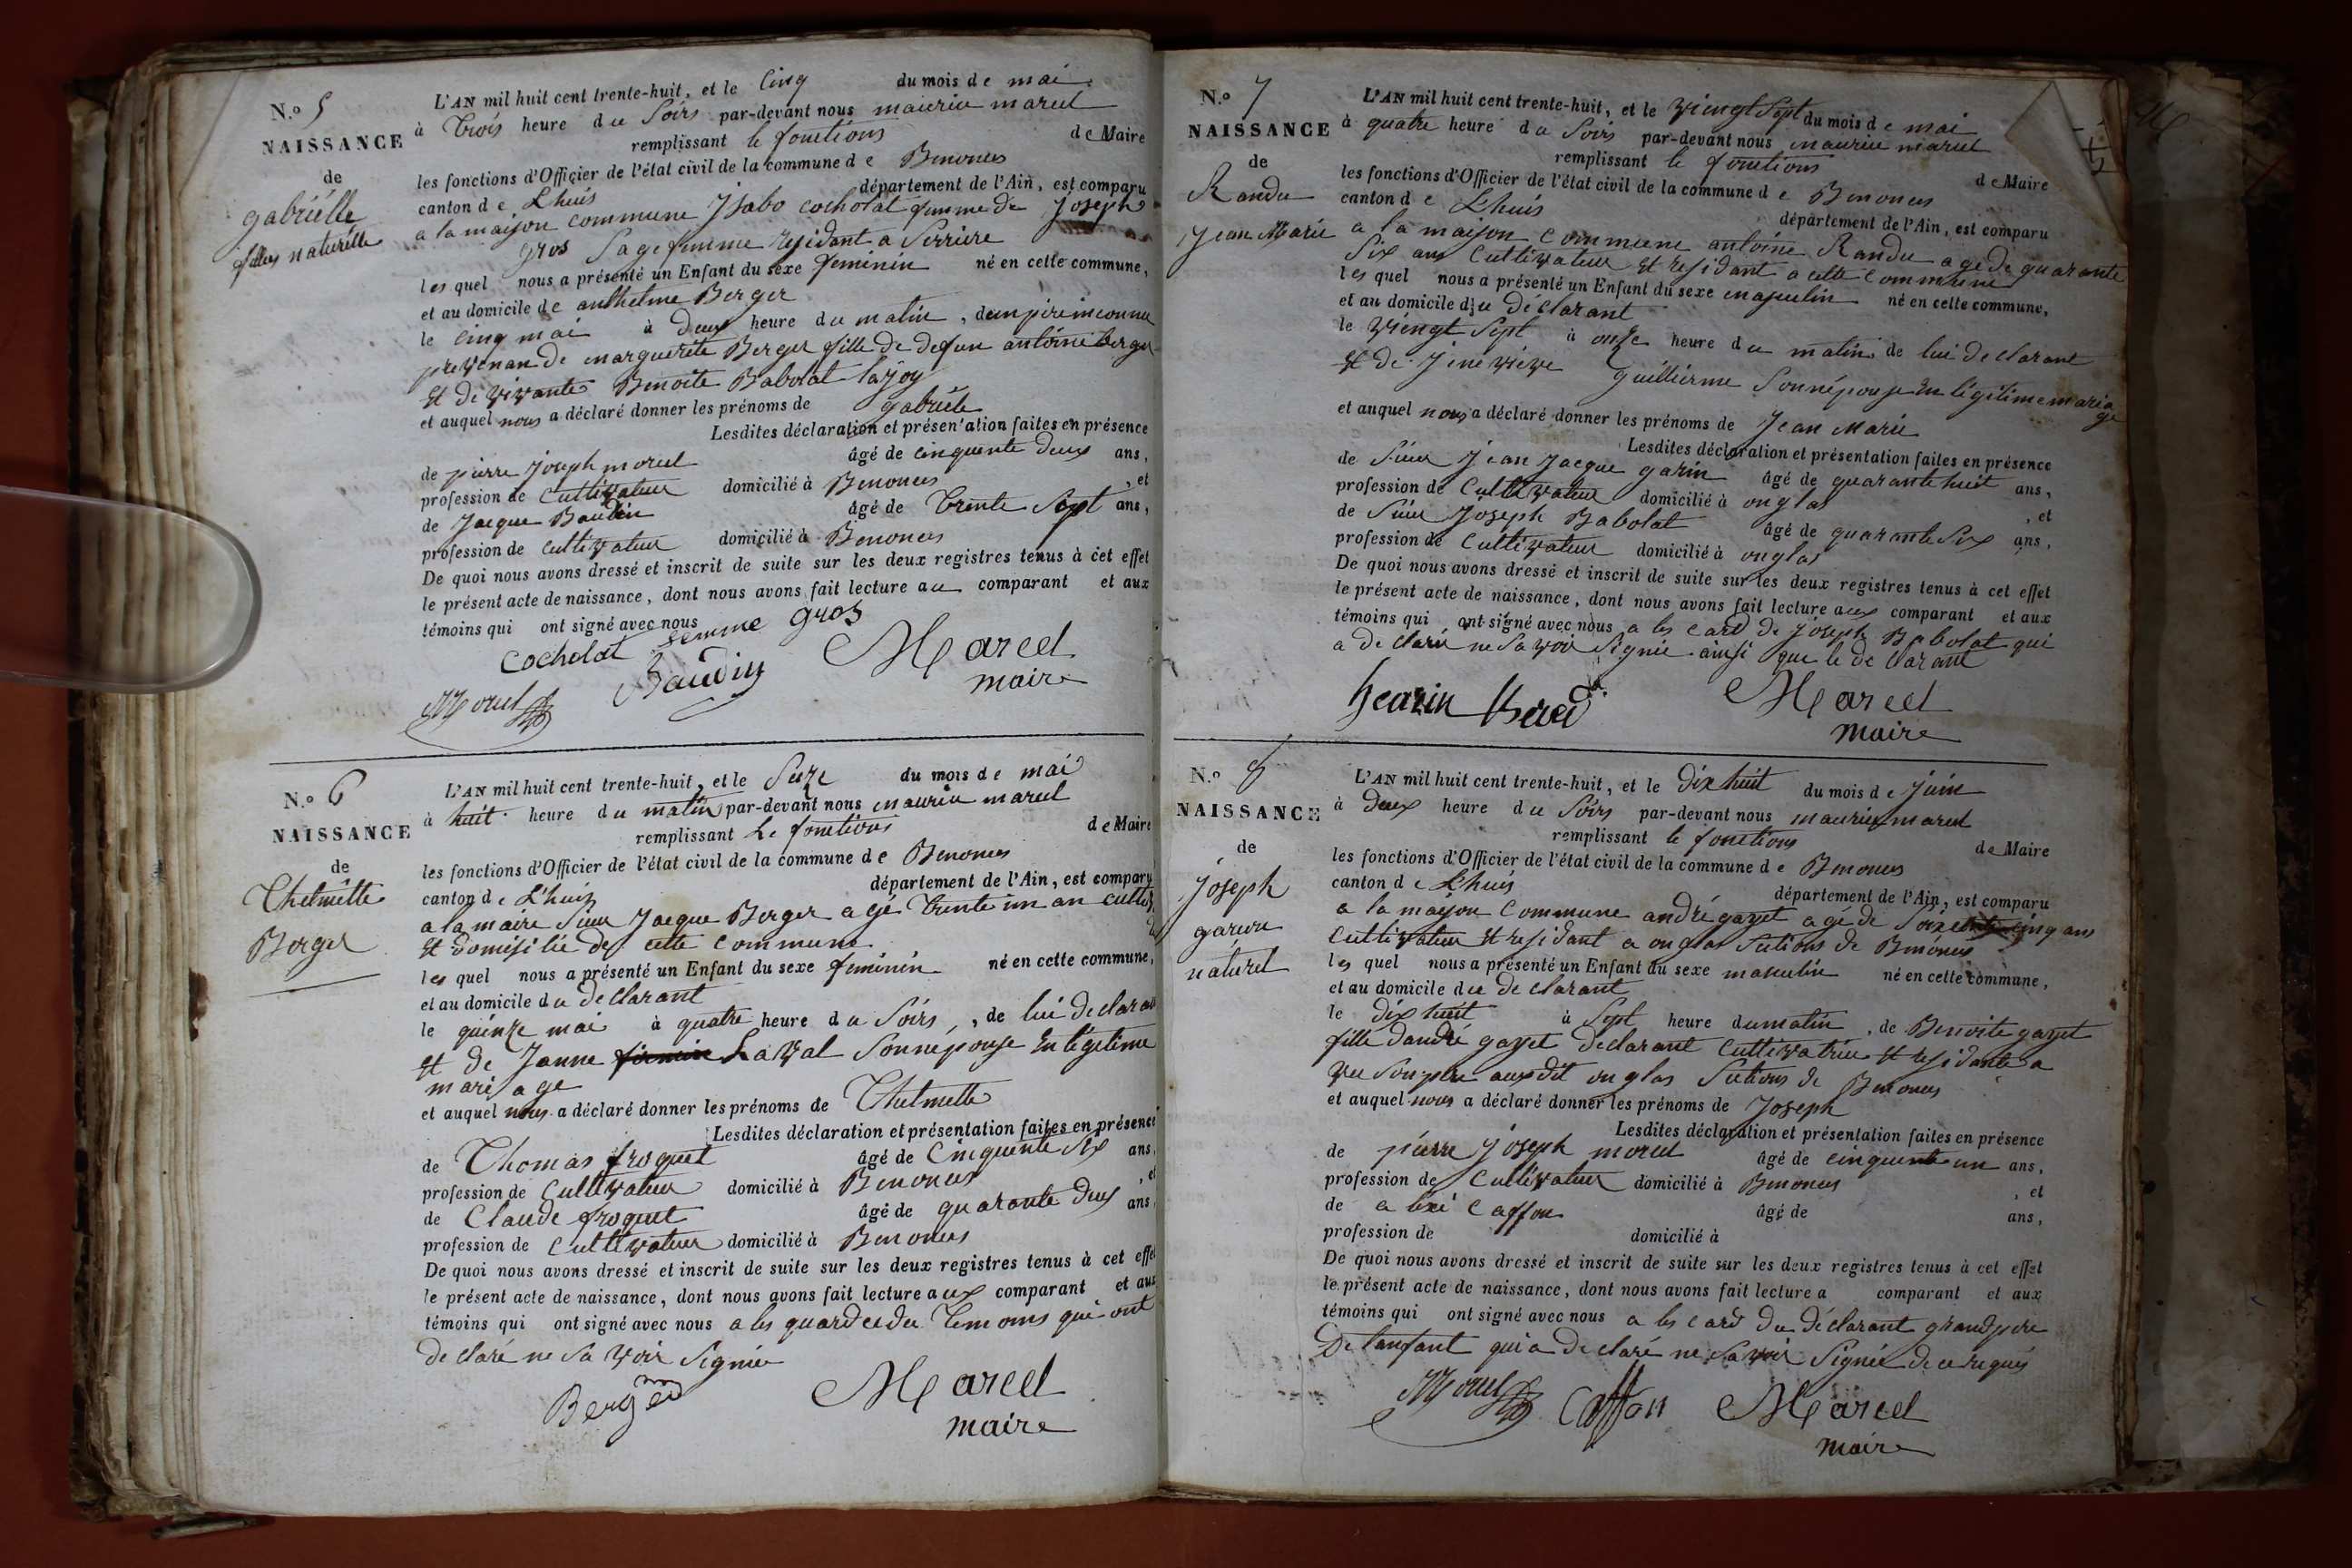 N.o 5
NAISSANCE
de
gabriélle
filles naturélle
L'AN mil huit cent trente-huit, et le Cinq du mois de mai
à Trois heure du Soirs par-devant nous maurice marcel
remplissant le fonctions de Maire
les fonctions d'Officier de l'état civil de la commune de Benonces
canton de Lhuis département de l'Ain, est comparu
a la maison commune Jsabo cocholat femme de Joseph
gros Sage femme residant a Serriere
les quel nous a présenté un Enfant du sexe feminin né en cette commune,
et au domicile de anthelme Berger
le cinq mai à Deux heure du matin, dun pére inconnu
provenan de marguerite Berger fille de defun antoine berger
et de vivante Benoite Babolat lajoy
et auquel nous a déclaré donner les prénoms de gabriéle
Lesdites déclaration et présentation faites en présence
de pierre joseph morel âgé de cinquente deux ans,
profession de Cultivateur domicilié à Benonces, et
de Jacque Baudin âgé de Trente Sept ans,
profession de cultivateur domicilié à Benonces
De quoi nous avons dressé et inscrit de suite sur les deux registres tenus à cet effet
le présent acte de naissance, dont nous avons fait lecture au comparant et aux
témoins qui ont signé avec nous
cocholat femme gros
Morel Baudin Marcel
maire
N.o 6
NAISSANCE
de
Thelmette
Berger
L'AN mil huit cent trente-huit, et le Seize du mois de mai
à huit heure du matin par-devant nous maurice marcel
remplissant Le fonctions de Maire
les fonctions d'Officier de l'état civil de la commune de Benonces
canton de Lhuis département de l'Ain, est comparu
a la maire Sieur Jacque Berger agé Trente un an cultiv
et domisilié de cette commune
les quel nous a présenté un Enfant du sexe feminin né en cette commune,
et au domicile du declarant
le quinze mai à quatre heure du Soirs, de lui declarant
et de Janne Laval Sonnépouse En légitime
mariage
et auquel nous a déclaré donner les prénoms de Thelmette
Lesdites déclaration et présentation faites en présence
de Thomas froquet âgé de Cinquente Six ans,
profession de Cultivateur domicilié à Benonces, et
de Claude froquet âgé de quarante deux ans,
profession de Cultivateur domicilié à Benonces
De quoi nous avons dressé et inscrit de suite sur les deux registres tenus à cet effet
le présent acte de naissance, dont nous avons fait lecture aux comparant et aux
témoins qui ont signé avec nous a les quard du Temoins qui ont
declaré ne Savoir Signée
Berger Marcel
maire
N.o 7
NAISSANCE
de
Randu
Jean Marie
L'AN mil huit cent trente-huit, et le viengt Sept du mois de mai
à quatre heure du Soirs par-devant nous maurice marcel
remplissant le fonctions de Maire
les fonctions d'Officier de l'état civil de la commune de Benonces
canton de Lhuis département de l'Ain, est comparu
a la maison commune antoine Randu agé de quarante
Six ans Cultivateur et residant a cette commune
les quel nous a présenté un Enfant du sexe masculin né en cette commune,
et au domicile du déclarant
le viengt Sept à onze heure du matin de lui declarant
et de Jéneviéve guilliérme Sonnépouse En légitime mariage
et auquel nous a déclaré donner les prénoms de Jean Marie
Lesdites déclaration et présentation faites en présence
de Sieur jean Jacque garin âgé de quarante huit ans,
profession de Cultivateur domicilié à onglas, et
de Sieur Joseph Babolat âgé de quarante Six ans,
profession de Cultivateur domicilié à onglas
De quoi nous avons dressé et inscrit de suite sur les deux registres tenus à cet effet
le présent acte de naissance, dont nous avons fait lecture aux comparant et aux
témoins qui ont signé avec nous a les card de joseph Babolat qui
a declaré ne Savoir Signie ainsi que le declarant
Marcel
maire
N.o 8
NAISSANCE
de
joseph
naturel
L'AN mil huit cent trente-huit, et le Dix huit du mois de juin
à Deux heure du Soirs par-devant nous maurice marcel
remplissant le fonctions de Maire
les fonctions d'Officier de l'état civil de la commune de Benonces
canton de Lhuis département de l'Ain, est comparu
a la maison commune andré gazet agé de Soixente cinq ans
Cultivateur et residant a onglas Sections de Benonces
les quel nous a présenté un Enfant du sexe masculin né en cette commune,
et au domicile du declarant
le dix huit à Sept heure du matin, de Benoite gazet
fille dandré gazet declarant Cultivatrice et residante a
Son pere ausdit onglas Sections de Benonces
et auquel nous a déclaré donner les prénoms de Joseph
Lesdites déclaration et présentation faites en présence
de piérre joseph morel âgé de cinquente un ans,
profession de Cultivateur domicilié à Benonces, et
de alexi Caffon âgé de ans,
profession de domicilié à
De quoi nous avons dressé et inscrit de suite sur les deux registres tenus à cet effet
le présent acte de naissance, dont nous avons fait lecture a comparant et aux
témoins qui ont signé avec nous a les card du déclarant grand pere
De lanfant qui a declaré ne Savoir Signée de ce requis
Morel Caffon Marcel
maire